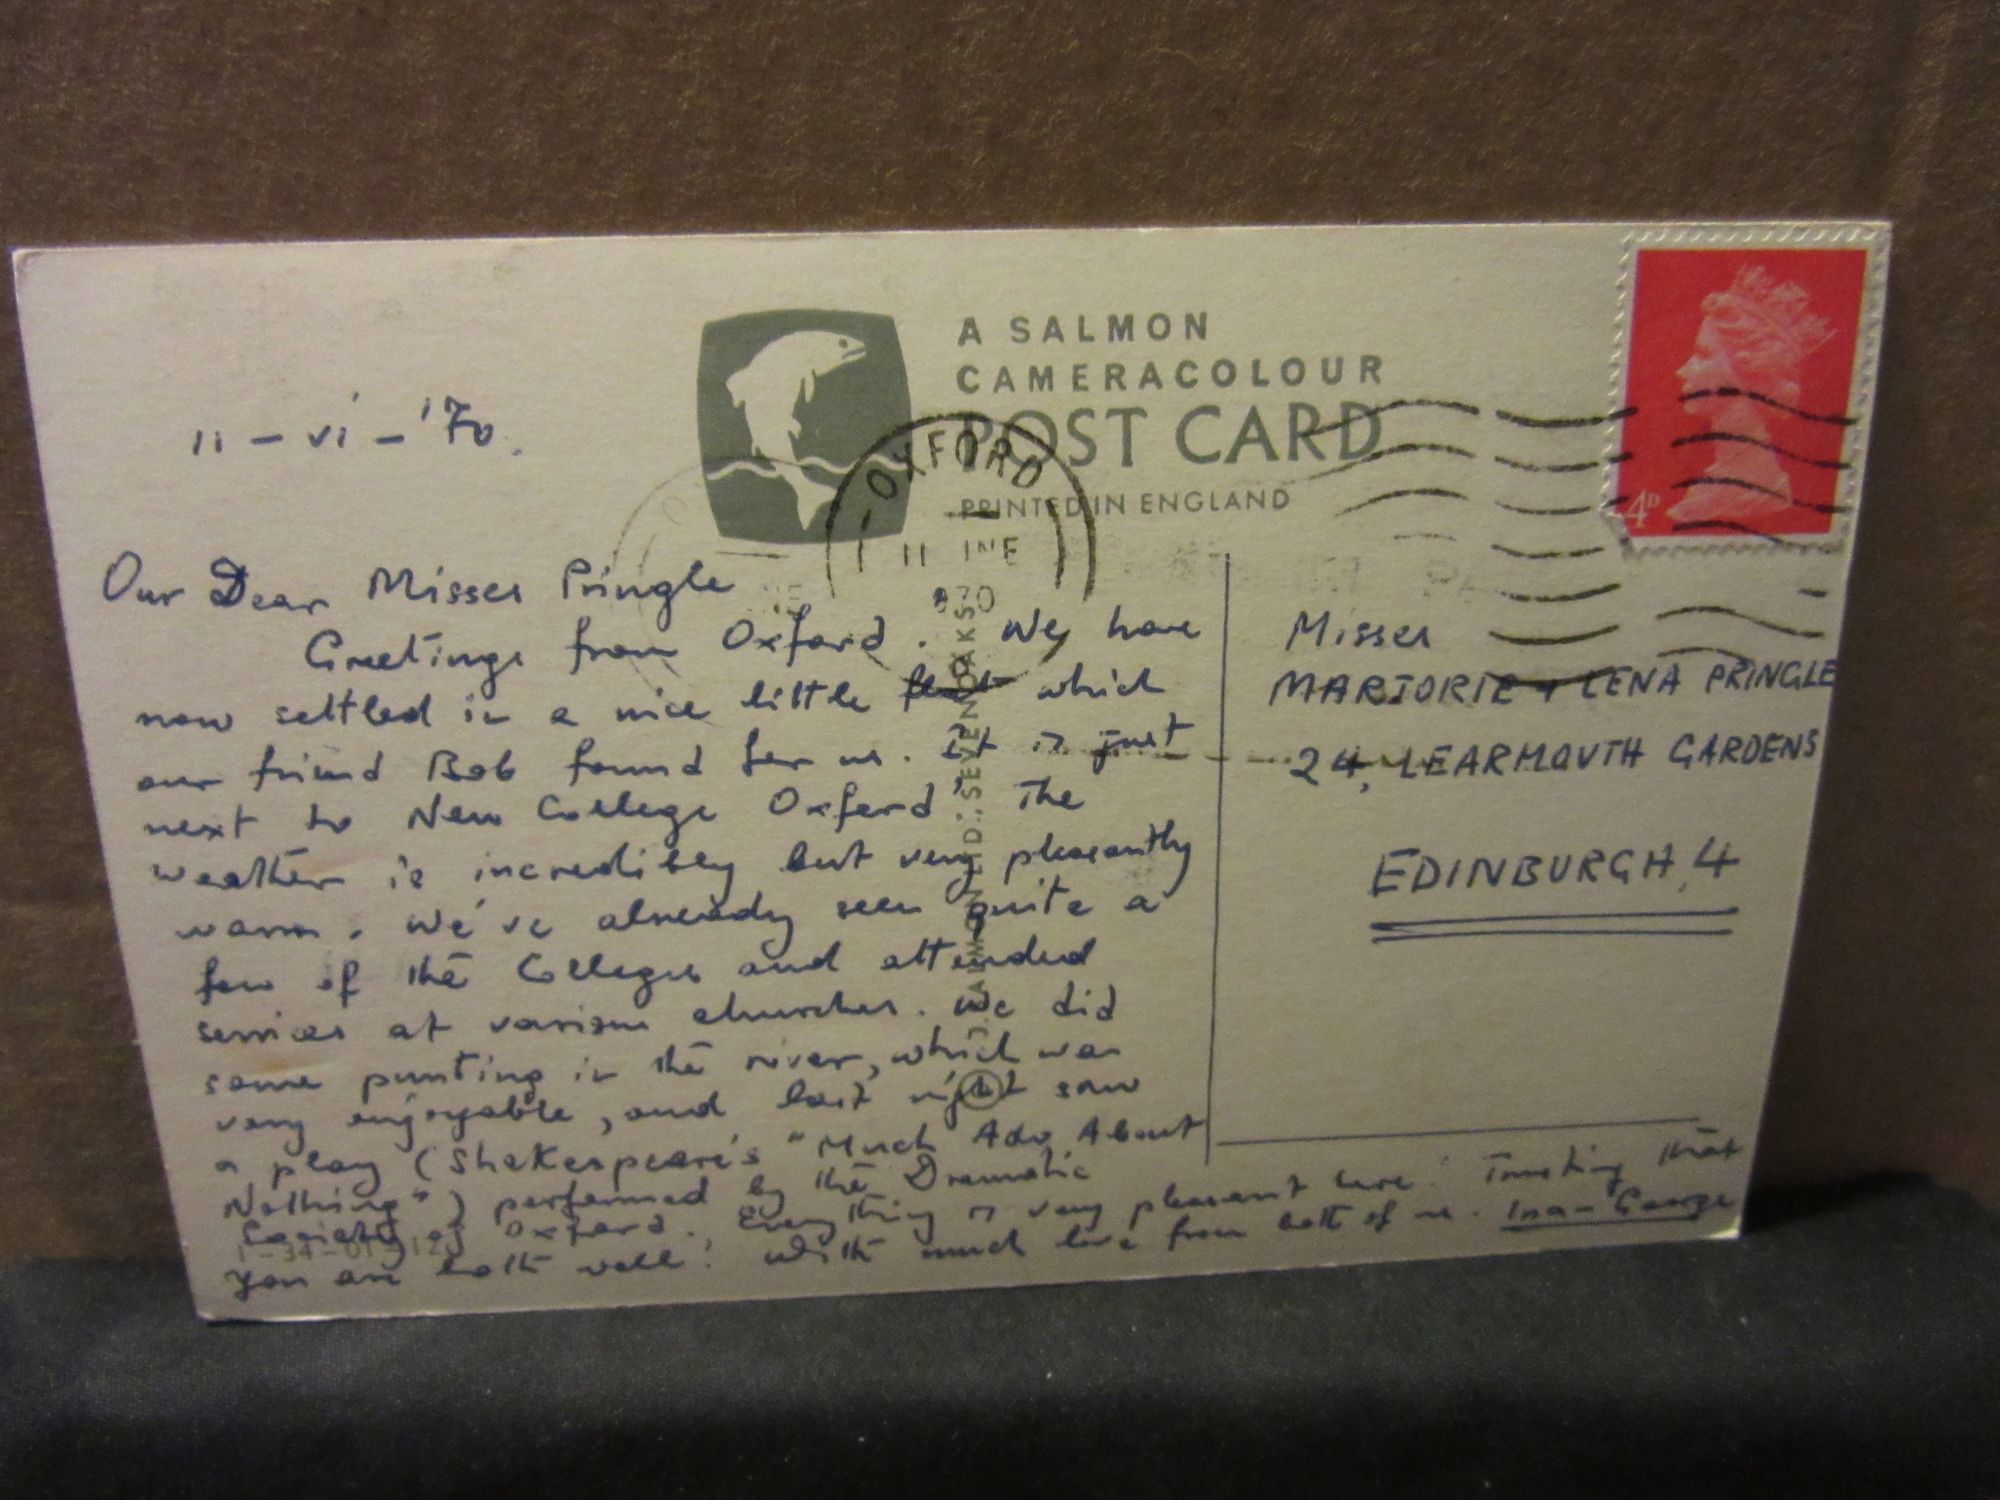 A SALMON
CAMERACOLOUR
POST CARD
PRINTED IN ENGLAND
OXFORD
11 JNE
1970
4D
11 - vi - '70.
Our Dear Misses Pringle
Greetings from Oxford. We have
now settled in a nice little flat which
our friend Bob found for us. It is just
next to New College Oxford. The
weather is incredibly but very pleasantly
warm. We've already seen quite a
few of the Colleges and attended
services at various churches. We did
some punting in the river, which was
very enjoyable, and last night saw
a play (Shakespeare's "Much Ado About
Nothing") performed by the Dramatic
Society of Oxford. Everything is very pleasant here! Trusting that
you are both well! With much love from both of us. Ina - George
Misses
MARJORIE + LENA PRINGLE
24, LEARMOUTH GARDENS
EDINBURGH, 4
SALMON LTD., SEVENOAKS